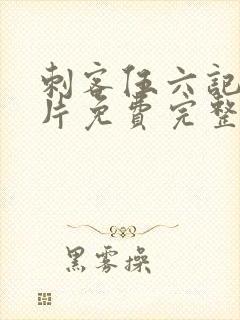 刺客伍六記
片免費完整
黑雾操